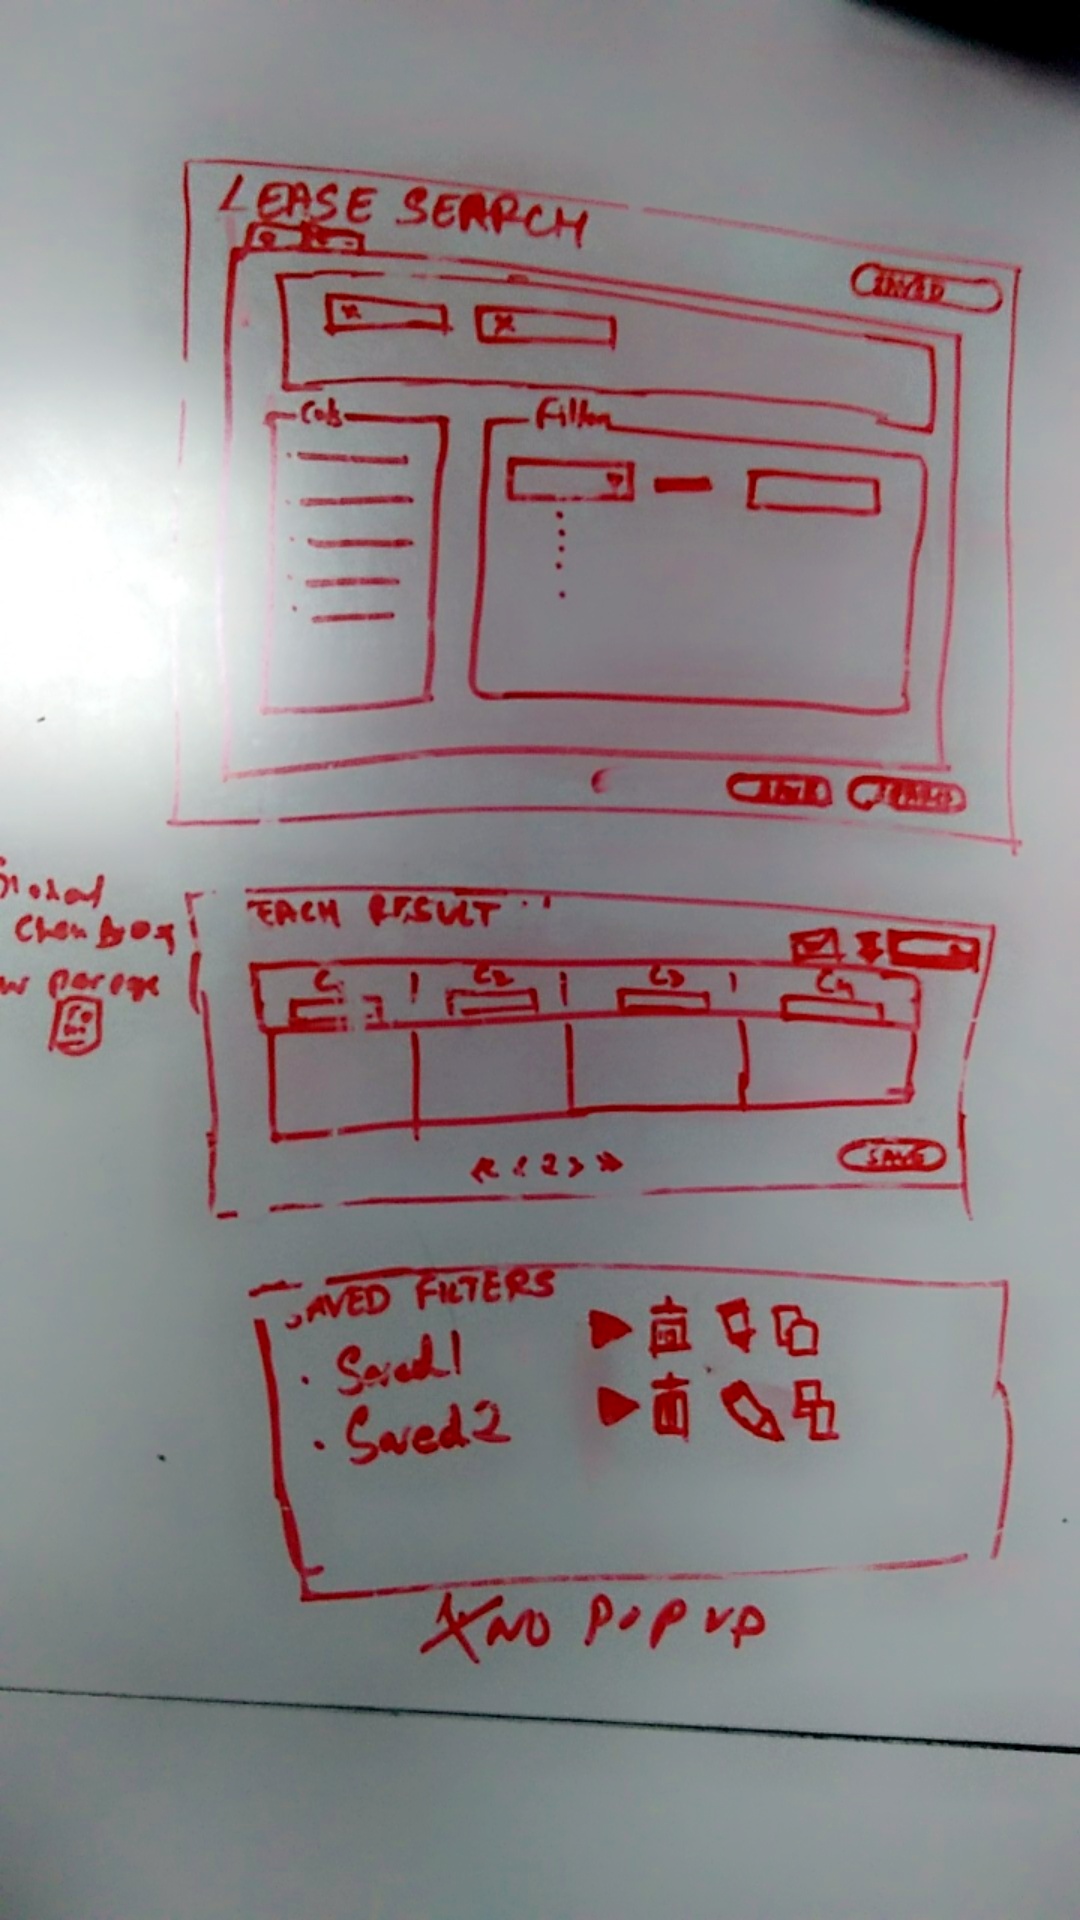 LEASE SEARCH
SAVED
x x
Cols
Filter
SAVE SEARCH
EACH RESULT
C1 C2 C3 C4
<< < 2 > >>
SAVE
SAVED FILTERS
. Saved1
. Saved2
* NO POPUP